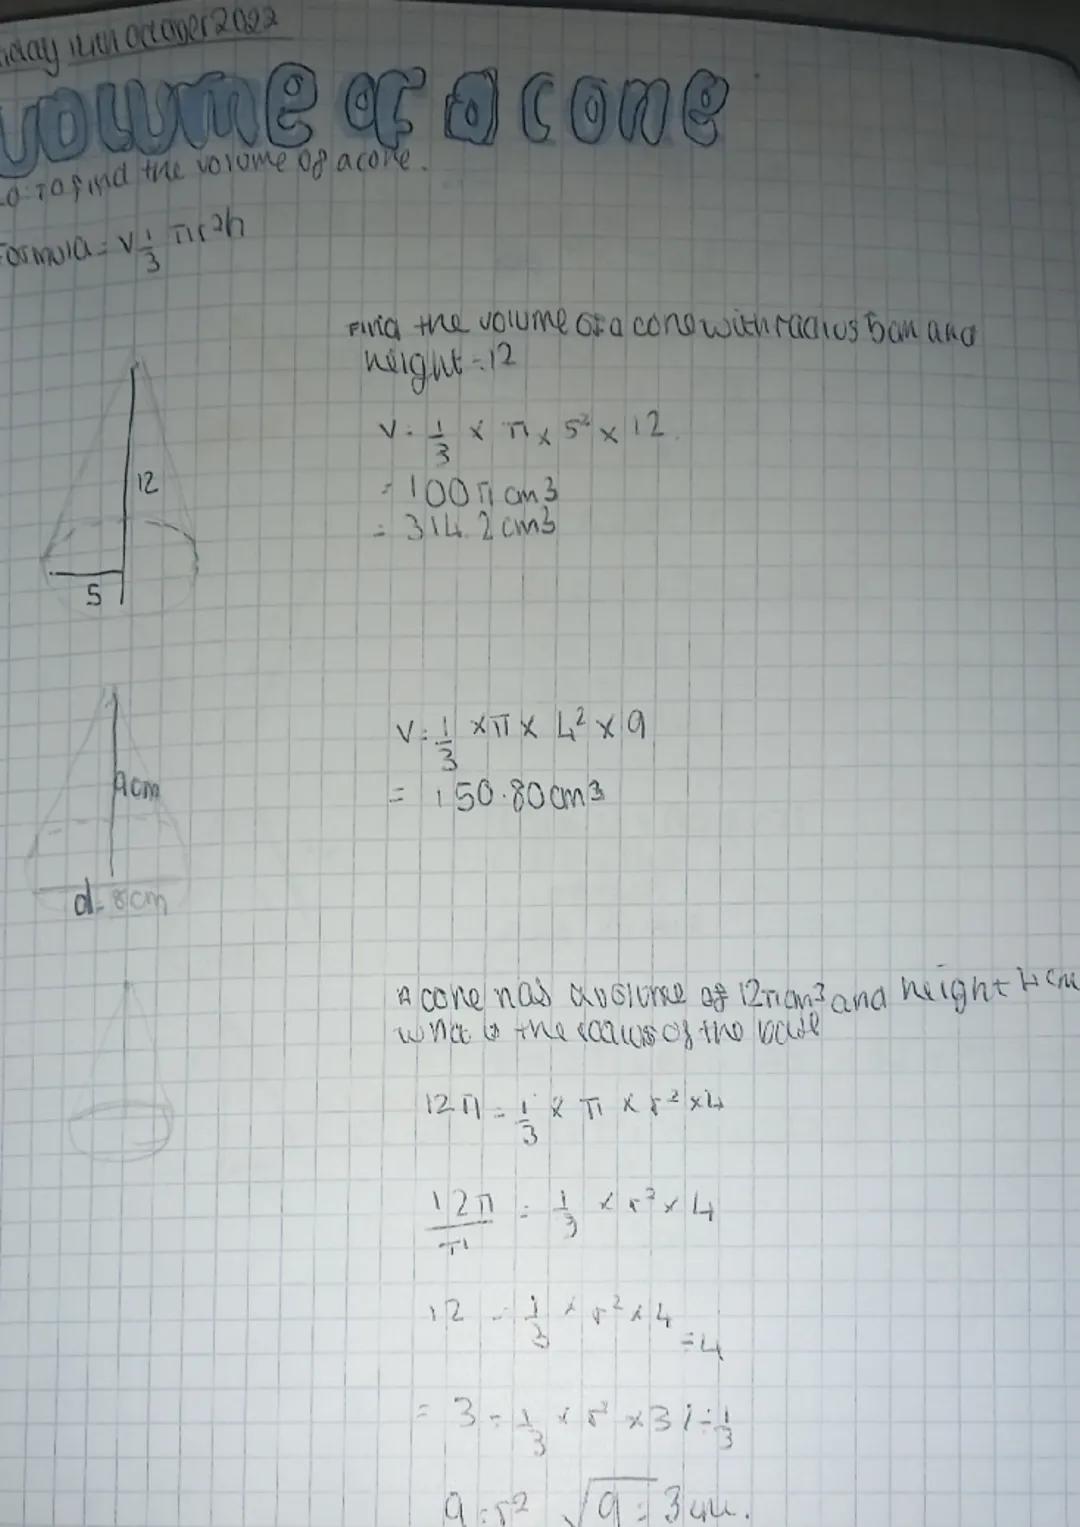 October 2022
volume of a cone
To find the volume of a cone.
Formula = V 1/3 πr²h
Find the volume of a cone with radius 5cm and
height = 12
V = 1/3 × π × 5² × 12
= 100π cm3
= 314.2cm3
12
5
V = 1/3 × π × 4² × 9
= 150.80cm3
9cm
d = 8cm
A cone has a volume of 12πcm³ and height 4cm
what is the radius of the base
12π = 1/3 × π × r² × 4
12π/π = 1/3 × r² × 4
12 = 1/3 × r² × 4
÷4
= 3 = 1/3 × r² × 3 ÷ 1/3
9 = r² √9 = 3cm.